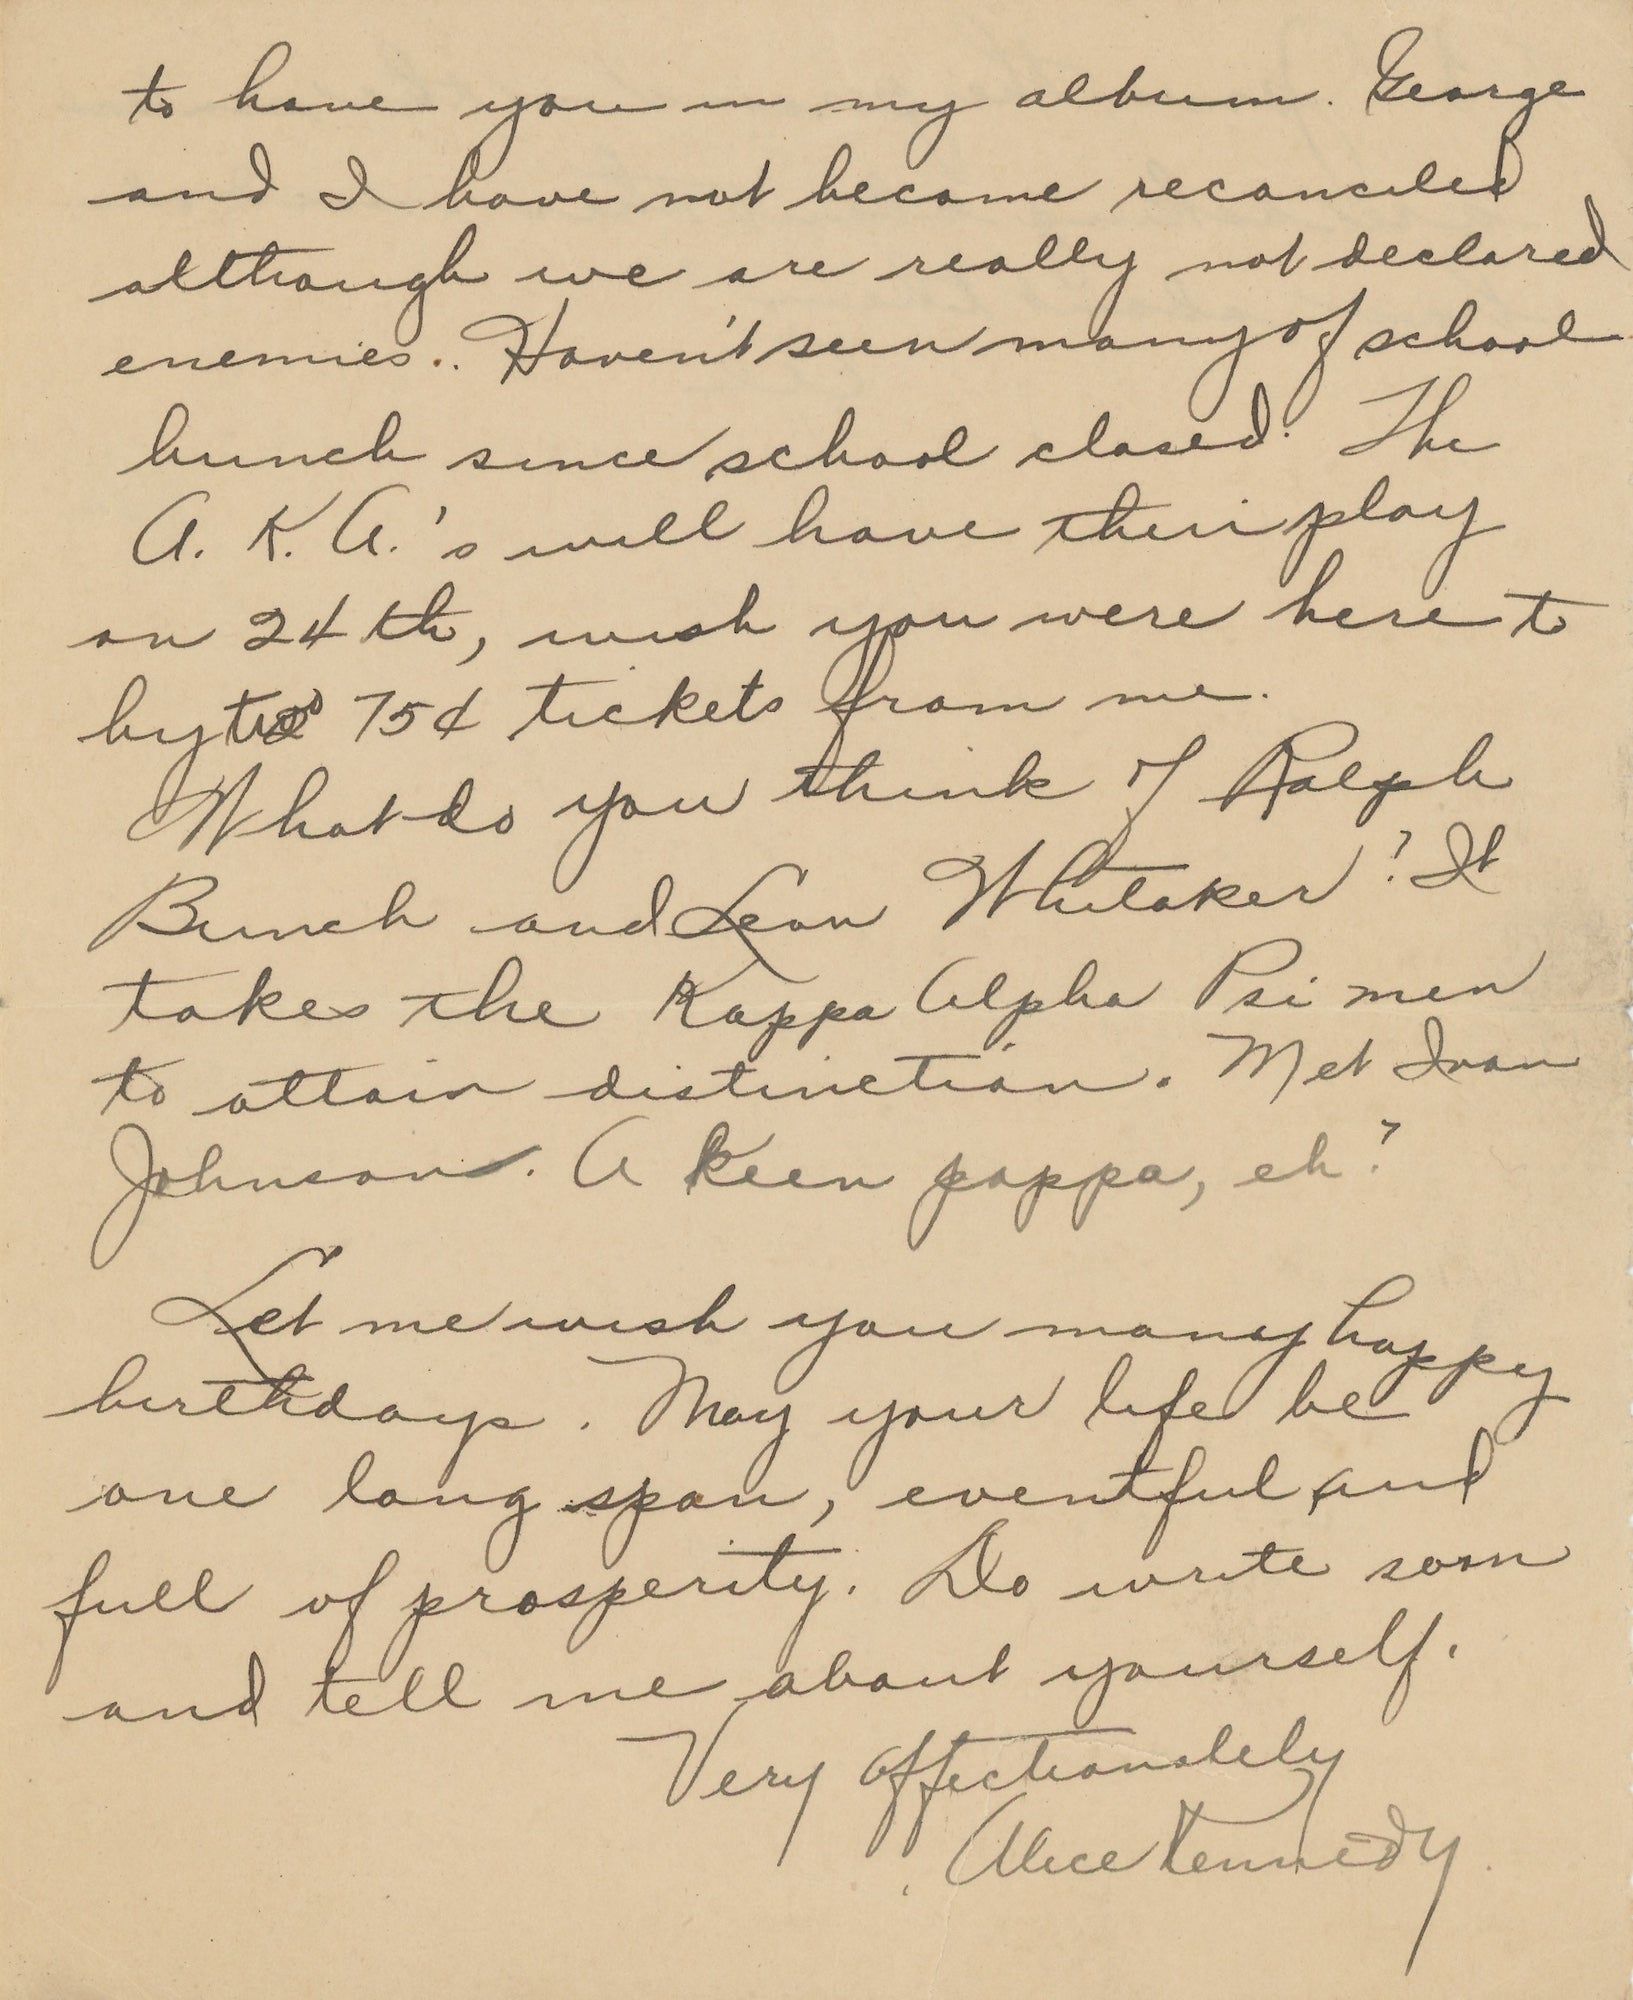 to have you in my album. George
and I have not become reconciled
although we are really not declared
enemies.. Haven't seen many of school
bunch since school closed. The
A. K. A.'s will have their play
on 24th, wish you were here to
by two 75¢ tickets from me.
What do you think of Ralph
Bunch and Leon Whitaker? It
takes the Kappa Alpha Psi men
to attain distinction. Met Ivan
Johnson. A keen pappa, eh?
Let me wish you many happy
birthdays. May your life be
one long span, eventful and
full of prosperity. Do write soon
and tell me about yourself.
Very affectionately
Alice Kennedy.